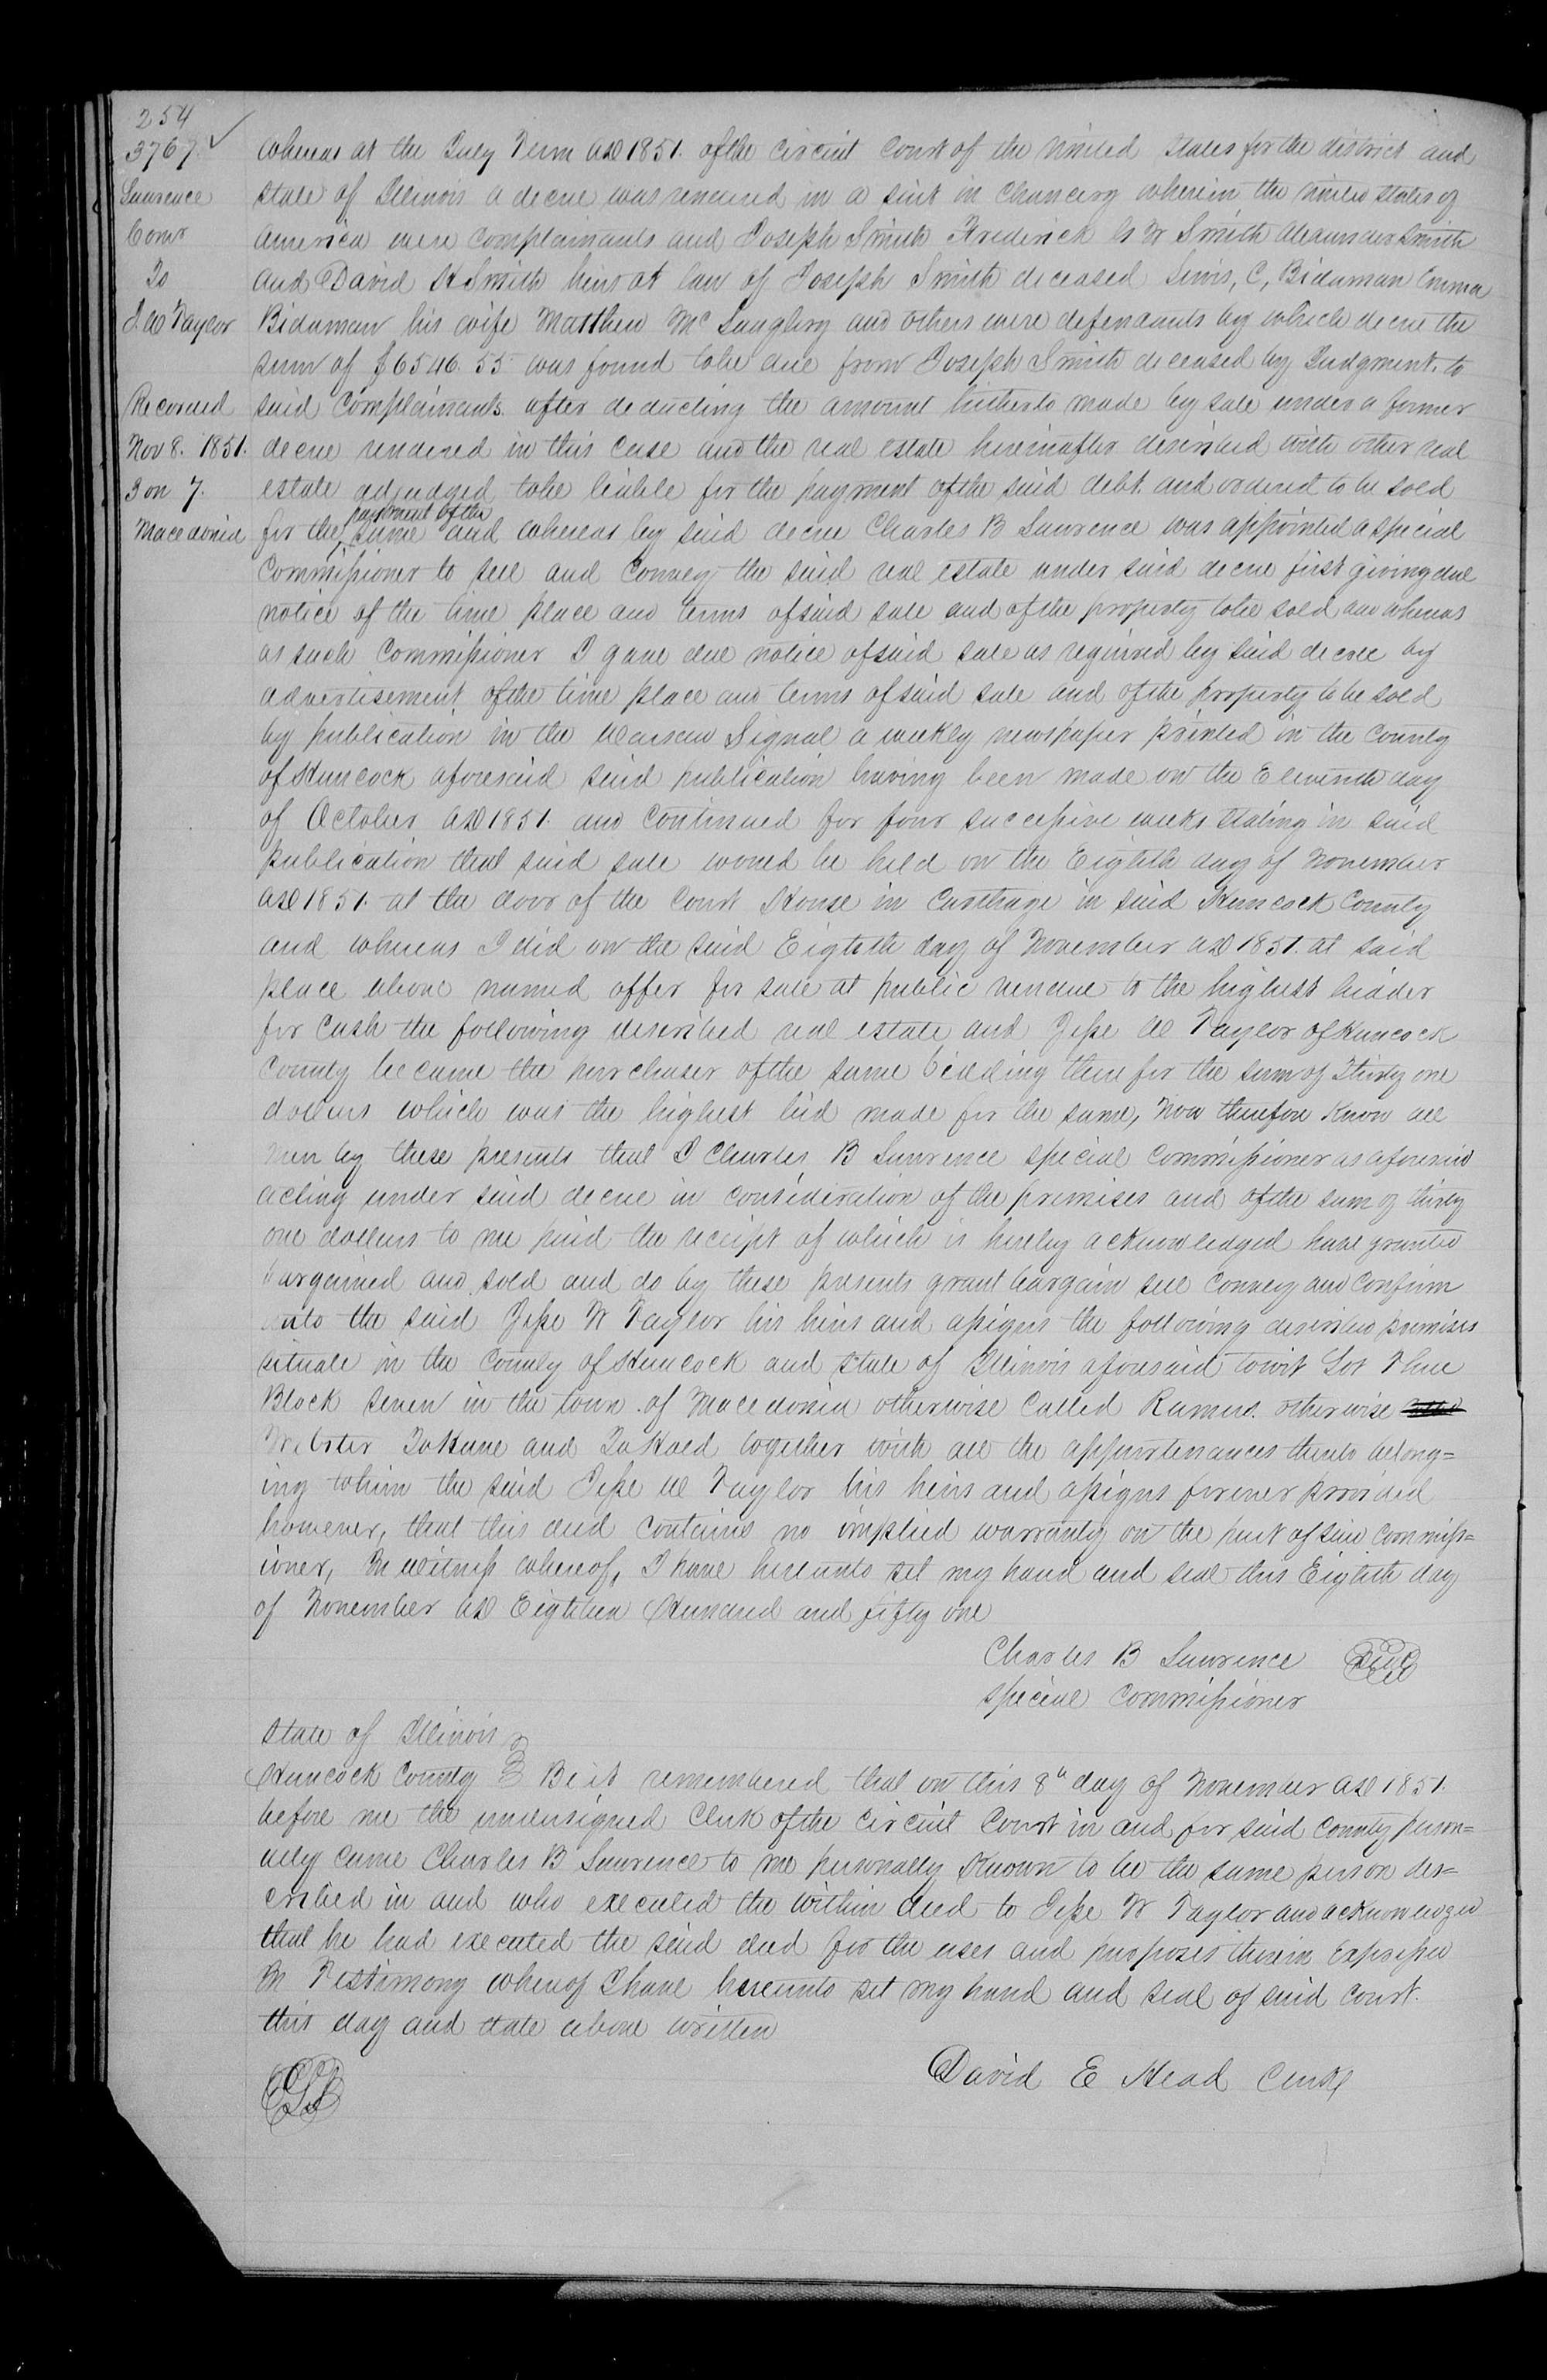 254
3767 ✓
Lawrence
Comr
To
J W Taylor
Recorded
Nov 8. 1851.
3 on 7.
Macedonia
Whereas at the July Term AD 1851. of the Circuit Court of the United States for the district and
State of Illinois a decree was rendered in a suit in Chancery wherein the United States of
America were Complainants and Joseph Smith Frederick G W Smith Alexander Smith
and David H Smith heirs at law of Joseph Smith deceased Lewis, C, Bidaman Emma
Bidaman his wife Matthew Mc Laughlry and others were defendants by which decree the
sum of $6546.55 was found to be due from Joseph Smith deceased by Judgment. to
said Complainants after deducting the amount hitherto made by sale under a former
decree rendered in this case and the real estate hereinafter described with other real
estate adjudged to be liable for the payment of the said debt. and ordered to be sold
payment of the
for the same and whereas by said decree Charles B Lawrence was appointed a special
Commissioner to sell and Convey the said real estate under said decree first giving due
notice of the time place and terms of said sale and of the property to be sold and whereas
as such Commissioner I gave due notice of said sale as required by said decree by
advertisement of the time place and terms of said sale and of the property to be sold
by publication in the Warsaw Signal a weekly newspaper printed in the County
of Hancock aforesaid said publication having been made on the Eleventh day
of October AD 1851. and Continued for four successive weeks stating in said
publication that said sale would be held on the Eighth day of November
AD 1851. at the door of the Court House in Carthage in said Hancock County
and whereas I did on the said Eighth day of November AD 1851. at said
place above named offer for sale at public vendue to the highest bidder
for Cash the following described real estate and Jesse W Taylor of Hancock
County became the purchaser of the same bidding there for the sum of Thirty one
dollars which was the highest bid made for the same, Now therefore Know all
men by these presents that I Charles B Lawrence special Commissioner as aforesaid
acting under said decree in Consideration of the premises and of the sum of thirty
one dollars to me paid the receipt of which is hereby acknowledged have granted
bargained and sold and do by these presents grant bargain sell Convey and Confirm
unto the said Jesse W Taylor his heirs and assigns the following described premises
situate in the County of Hancock and State of Illinois aforesaid towit Lot Three
Block Seven in the town of Macedonia otherwise Called Ramus. otherwise
Webster To Have and To Hold together with all the appurtenances thereto belong=
ing to him the said Jesse W Taylor his heirs and assigns forever provided
however, that this deed Contains no implied warranty on the part of said Commiss=
ioner, In witness whereof, I have hereunto set my hand and seal this Eighth day
of November AD Eighteen Hundred and fifty one
Charles B Lawrence Seal
Special Commissioner
State of Illinois
Hancock County } Be it remembered that on this 8th day of November AD 1851.
before me the undersigned Clerk of the Circuit Court in and for said County person=
ally came Charles B Lawrence to me personally Known to be the same person des=
cribed in and who executed the within deed to Jesse W Taylor and acknowledged
that he had executed the said deed for the uses and purposes therein Expressed
In Testimony whereof I have hereunto set my hand and seal of said Court.
this day and date above written
David E Head Clerk
LS